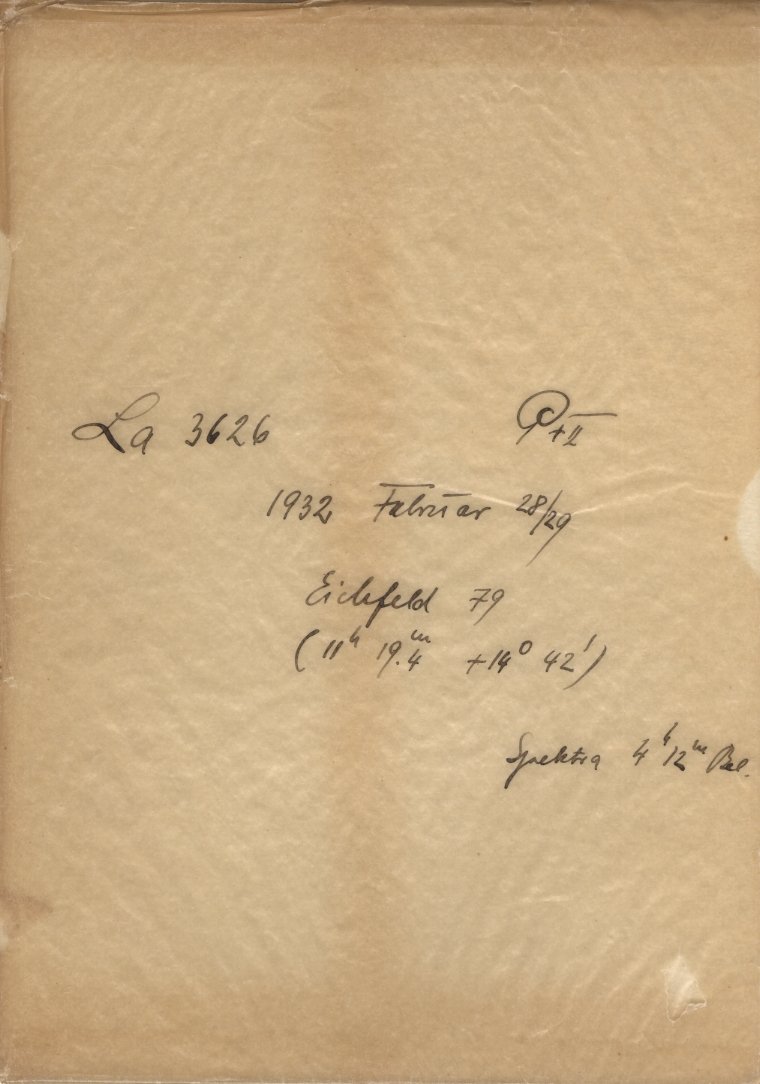 La 3626 P+II
1932 Februar 28/29
Eichfeld 79
(11h 19.4m +14° 42')
Spektra 4h 12m Bel.